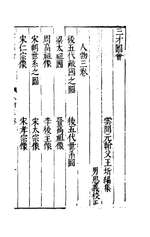 三才圖會
雲間元翰父王圻編集
男思義校正
人物三卷
後五代僭國之圖
後五代世系之圖
梁太祖圖
晉高祖像
周高祖像
李後主像
宋朝世系之圖
宋太宗像
宋仁宗像
宋孝宗像